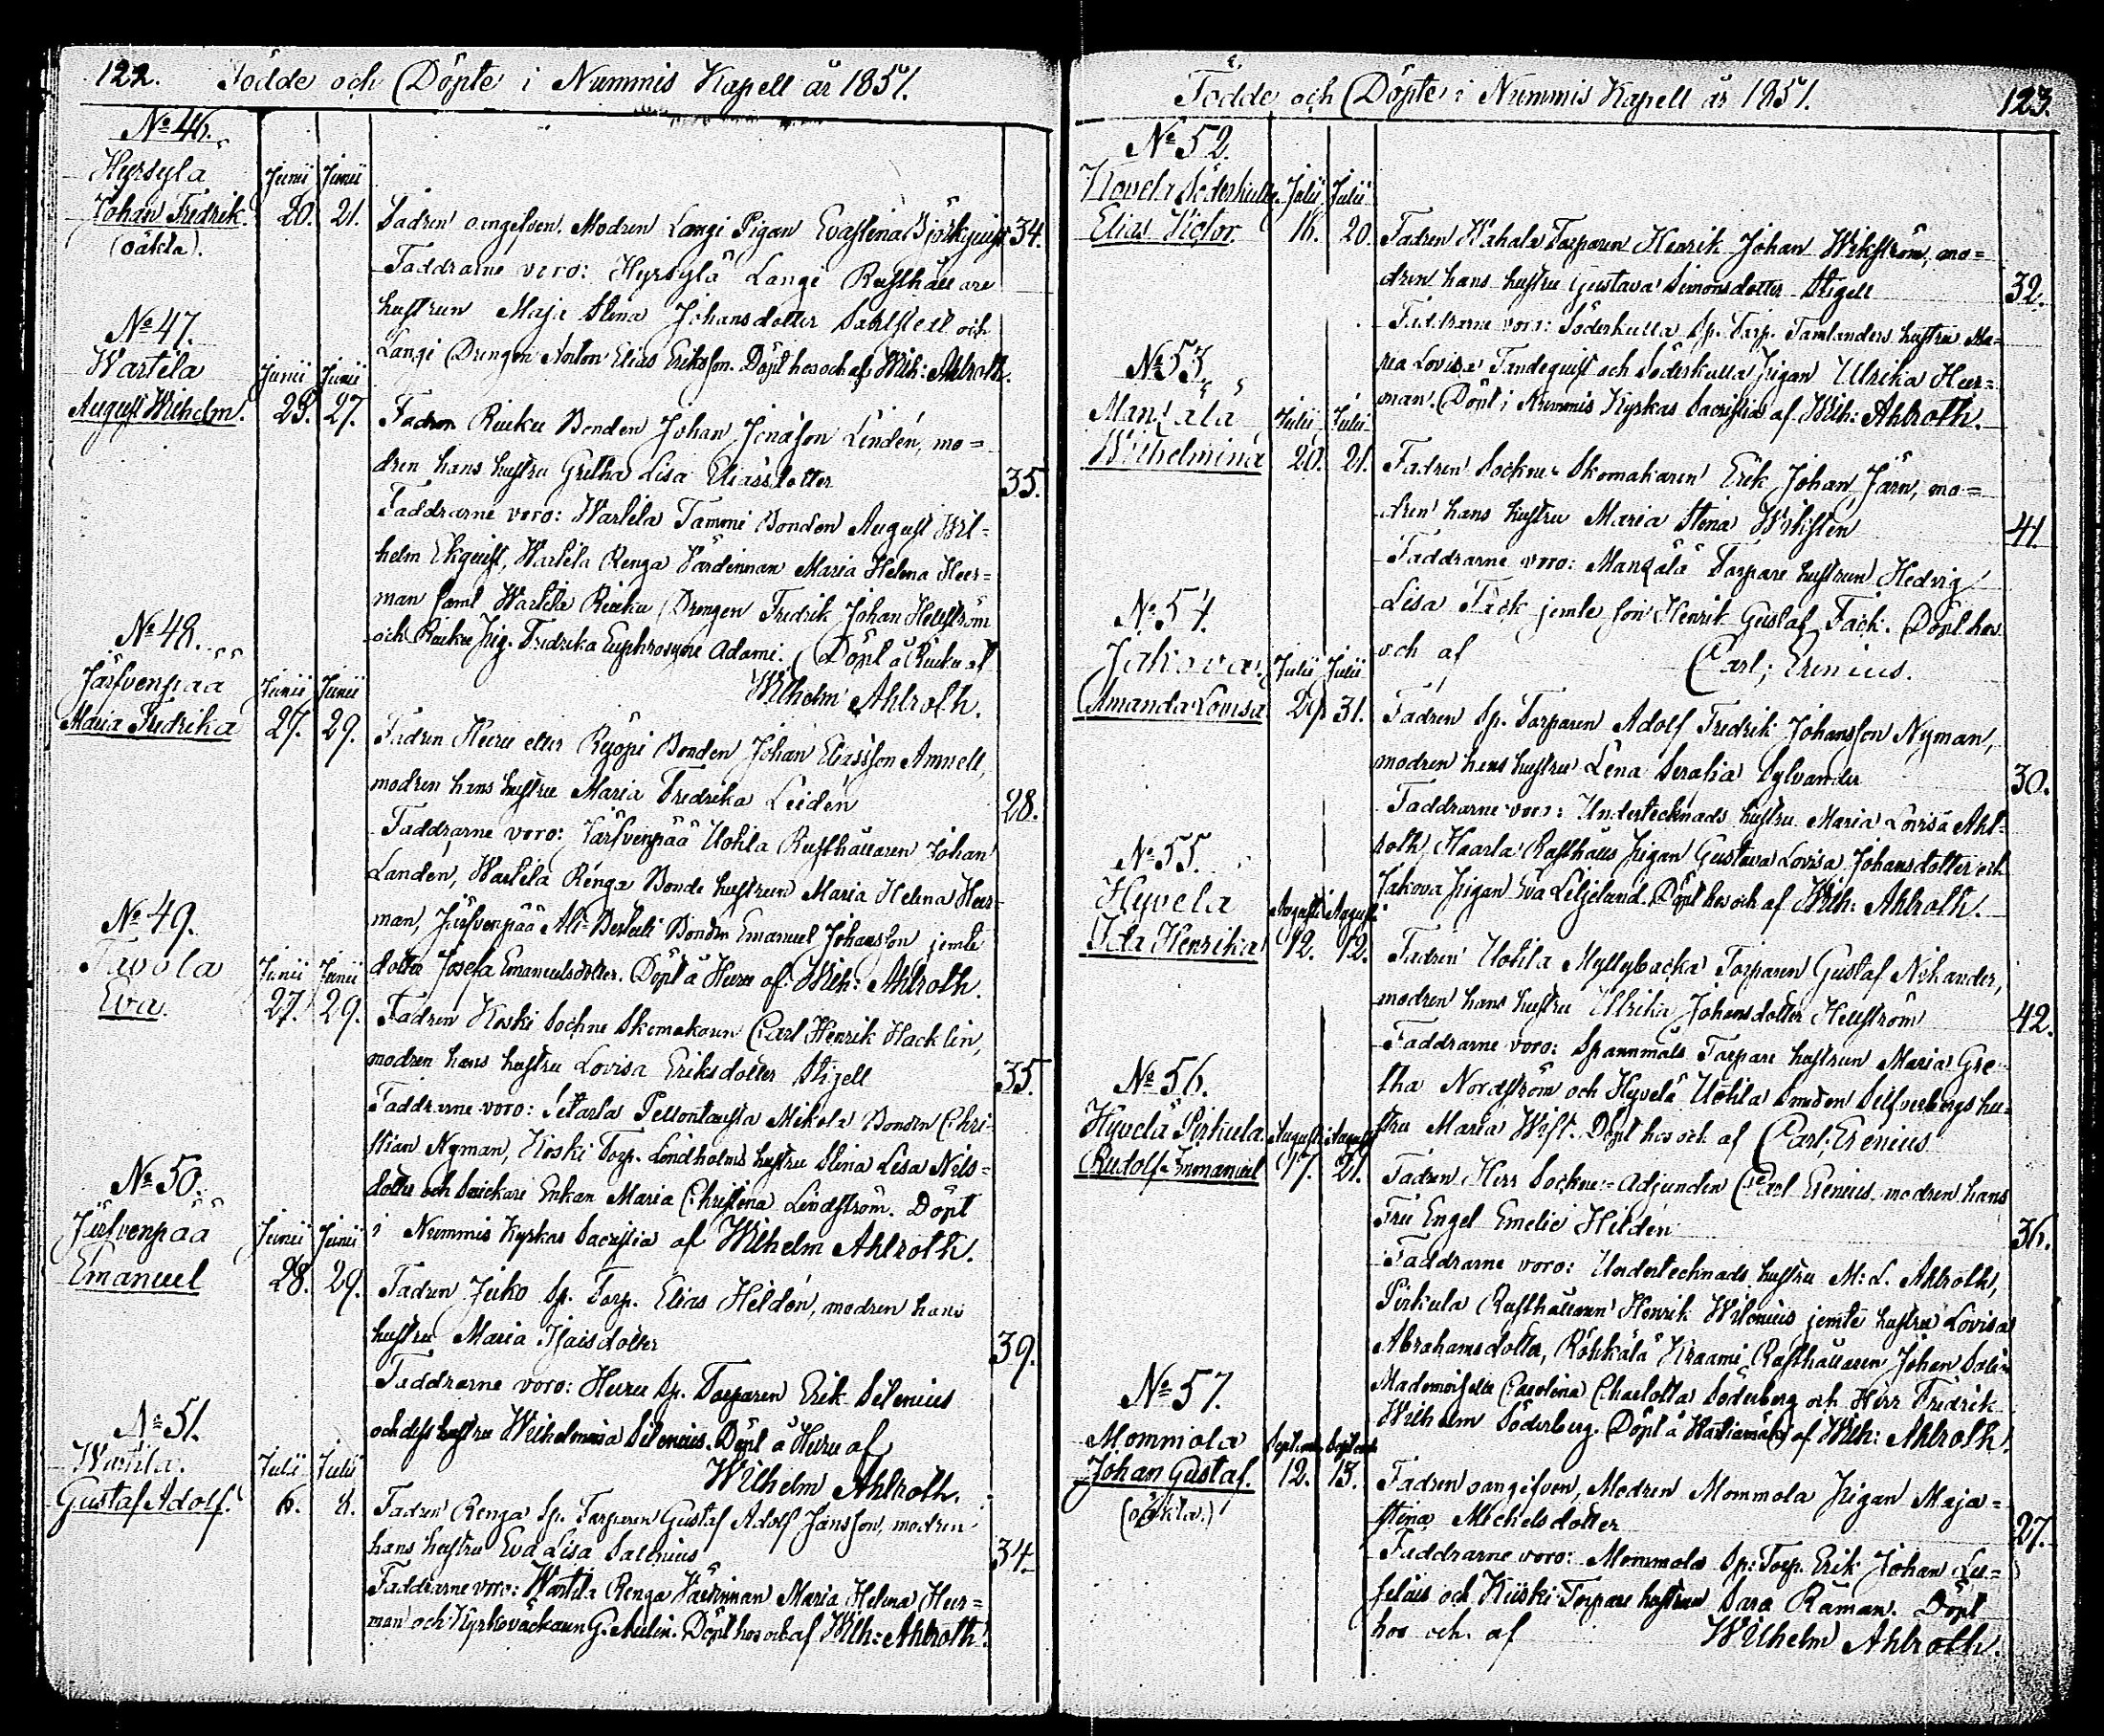 122. Födde och Döpte i Nummis Kapell år 1851.
No 46.
Hyrsylä
Junii Junii
Johan Fredrik. 20. 21.
(oäkta).
Fadren oangifven. Modren Langi Pigan Evastina Björkquist 34.
Faddrarne voro: Hyrsylä Langi Rusthållare
hustrun Maja Stina Johansdotter Sahlstedt och
Langi Drengen Anton Elias Eriksson. Döpt hos och af Wilh: Ahlroth.
No 47.
Wartila
Junii Junii
August Wilhelm. 23. 27.
Fadren Riuku Bonden Johan Jonasson Lindén, mo=
dren hans hustru Gretha Lisa Eliasdotter 35.
Faddrarne voro: Wartila Tammi Bonden August Wil=
helm Ekquist, Wartila Renga Värdinnan Maria Helena Heer=
man samt Wartila Riuku Drengen Fredrik Johan Hellström
och Riuku Pig. Fredrika Euphrosyne Adami. Döpt å Riuku af
Wilhelm Ahlroth.
No 48.
Järfvenpää
Junii Junii
Maria Fredrika 27. 29.
Fadren Heeru eller Ryöpi Bonden Johan Eliasson Amnell,
modren hans hustru Maria Fredrika Leidén 28.
Faddrarne voro: Järfvenpää Uotila Rusthållaren Johan
Landén, Wartila Renga Bonde hustrun Maria Helena Heer=
man, Järfvenpää Ali-Bertuli Bonden Emanuel Johansson jemte
dotter Josefa Emanuelsdotter. Döpt å Heeru af: Wilh: Ahlroth.
No 49.
Tavola
Junii Junii
Eva. 27. 29.
Fadren Koski Sockne Skomakaren Carl Henrik Hacklin,
modren hans hustru Lovisa Eriksdotter Stigell 35.
Faddrarne voro: Setarla Pellontausta Mikola Bonden Chri=
stian Nyman, Koski Torp. Lindholms hustru Stina Lisa Nils=
dotter och Snickare Enkan Maria Christina Lindström. Döpt
i Nummis Kyrkas Sacristia af Wilhelm Ahlroth.
No 50.
Järfvenpää
Junii Junii
Emanuel 28. 29.
Fadren Juko Sp. Torp. Elias Heldén, modren hans
hustru Maria Isaisdotter 39.
Faddrarne voro: Heeru Sp. Torparen Erik Silenius
och dess hustru Wilhelmina Silenius. Döpt å Heeru af
Wilhelm Ahlroth.
No 51.
Wartila.
Julii Julii
Gustaf Adolf. 6. 8.
Fadren Renga Sp. Torparen Gustaf Adolf Jansson, modren
hans hustru Eva Lisa Salenius 34.
Faddrarne voro: Wartila Renga Värdinnan Maria Helena Heer=
man och Kyrkoväcktaren G. Aulin. Döpt hos och af Wilh: Ahlroth.
Födde och Döpte i Nummis Kapell år 1851. 123.
No 52.
Söderkulla. Julii Julii
Elias Victor. 16. 20.
Fadren Kahala Torparen Henrik Johan Wikström, mo=
dren hans hustru Gustava Simonsdotter Stigell 32.
Faddrarne voro: Söderkulla Sp. Torp. Tamlanders hustru Ma=
ria Lovisa Tandequist och Söderkulla Pigan Ulrika Heer=
man. Döpt i Nummis Kyrkas Sacristia af Wilh: Ahlroth.
No 53.
Julii Julii
Wilhelmina 20. 21.
Fadren Sockne Skomakaren Erik Johan Järn, mo=
dren hans hustru Maria Stina Wiksten 41
Faddrarne voro: Torpare hustrun Hedvig
Lisa Fäck jemte son Henrik Gustaf Fäck. Döpt hos
och af Carl; Erenius.
No 54.
Jakova.
Julii Julii
Amanda Lovisa 29. 31.
Fadren Sp. Torparen Adolf Fredrik Johansson Nyman,
modren hans hustru Lena Serafia Sylvander 30.
Faddrarne voro: Undertecknads hustru Maria Lovisa Ahl=
roth, Haarla Rusthålls Pigan Gustava Lovisa Johansdotter och
Jakova Pigan Eva Liljeland. Döpt hos och af Wilh: Ahlroth.
No 55.
Hyvelä
Augusti Augusti
Ida Henrika 12. 12.
Fadren Uotila Myllybacka Torparen Gustaf Nikander,
modren hans hustru Ulrika Johansdotter Hellström 42.
Faddrarne voro: Spannmåls Torpare hustrun Maria Gre=
tha Nordström och Hyvelä Uotila Smeden Silfverbergs hu=
stru Maria Wast. Döpt hos och af Carl; Erenius
No 56.
Hyvelä Pirkula. Augusti Augusti
Rudolf Immanuel 17. 21.
Fadren Herr Sockne=Adjuncten Carl Erenius, modren hans
Fru Engel Emelie Hildén 36.
Faddrarne voro: Undertecknads hustru M: L. Ahlroth,
Pirkula Rusthållaren Henrik Wilenius jemte hustru Lovisa
Abrahamsdotter, Röhkälä Kraami Rusthållaren Johan
Mademoiselle Carolina Charlotta Söderberg och Herr Fredrik
Wilhelm Söderberg. Döpt å af Wilh: Ahlroth.
No 57.
Mommola
Septemb Septemb
Johan Gustaf. 12. 13.
(oäkta.)
Fadren oangifven, Modren Mommola Pigan Maja=
stina Michelsdotter 27.
Faddrarne voro: Mommola Sp. Torp. Erik Johan Lu=
selius och Kiiski Torpare hustrun Sara Råman. Döpt
hos och af Wilhelm Ahlroth.